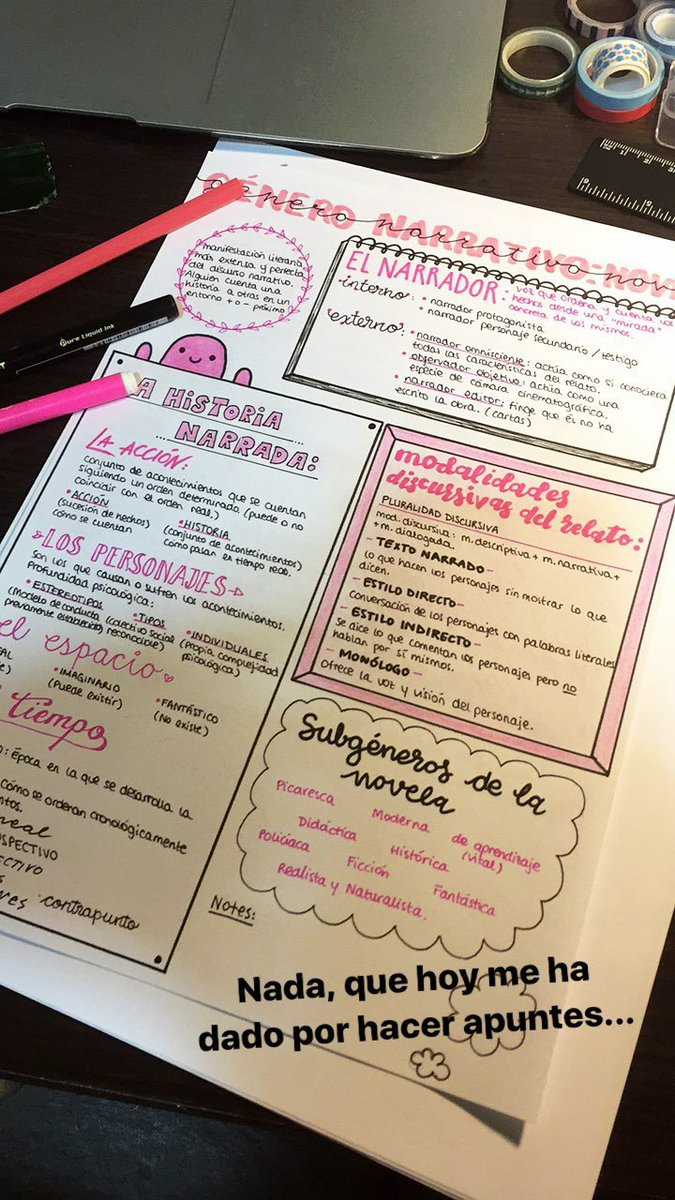 GÉNERO NARRATIVO:
género narrativo
manifestación literaria
más extensa y perfecta
del discurso narrativo.
Alguien cuenta una
historia a otras en un
entorno + o - próximo
EL NARRADOR: voz que ordena y cuenta los
hechos desde una "mirada"
concreta de los mismos.
interno: • narrador protagonista
• narrador personaje secundario / testigo
externo: • narrador omnisciente: actúa como si conociera
todas las características del relato.
• observador objetivo: actúa como una
especie de cámara cinematográfica.
• narrador editor: finge que él no ha
escrito la obra. (cartas)
Pure Liquid Ink
LA HISTORIA
NARRADA:
LA ACCIÓN:
conjunto de acontecimientos que se cuentan
siguiendo un orden determinado (puede o no
coincidir con el orden real.)
• ACCIÓN
(sucesión de hechos)
cómo se cuentan
• HISTORIA
(conjunto de acontecimientos)
Cómo pasan en tiempo real.
LOS PERSONAJES
Son los que causan o sufren los acontecimientos.
Profundidad psicológica:
• ESTEREOTIPOS
(Modelo de conducta
previamente establecido)
• TIPOS
(colectivo social
reconocible)
• INDIVIDUALES
(Propia complejidad
psicológica)
el espacio
• IMAGINARIO
(Puede existir)
• FANTÁSTICO
(No existe)
tiempo
: Época en la que se desarrolla la
Cómo se ordenan cronológicamente
contrapunto
modalidades
discursivas del relato:
PLURALIDAD DISCURSIVA
mod. discursiva: m. descriptiva + m. narrativa +
+ m. dialogada.
- TEXTO NARRADO -
lo que hacen los personajes sin mostrar lo que
dicen.
- ESTILO DIRECTO -
conversación de los personajes con palabras literales
- ESTILO INDIRECTO -
se dice lo que comentan los personajes pero no
hablan por sí mismos.
- MONÓLOGO -
Ofrece la voz y visión del personaje.
Subgéneros de la
novela
Picaresca
Moderna
de aprendizaje
(vital)
Didáctica
Histórica
Policíaca
Ficción
Fantástica
Realista y Naturalista.
Notes:
Nada, que hoy me ha
dado por hacer apuntes...